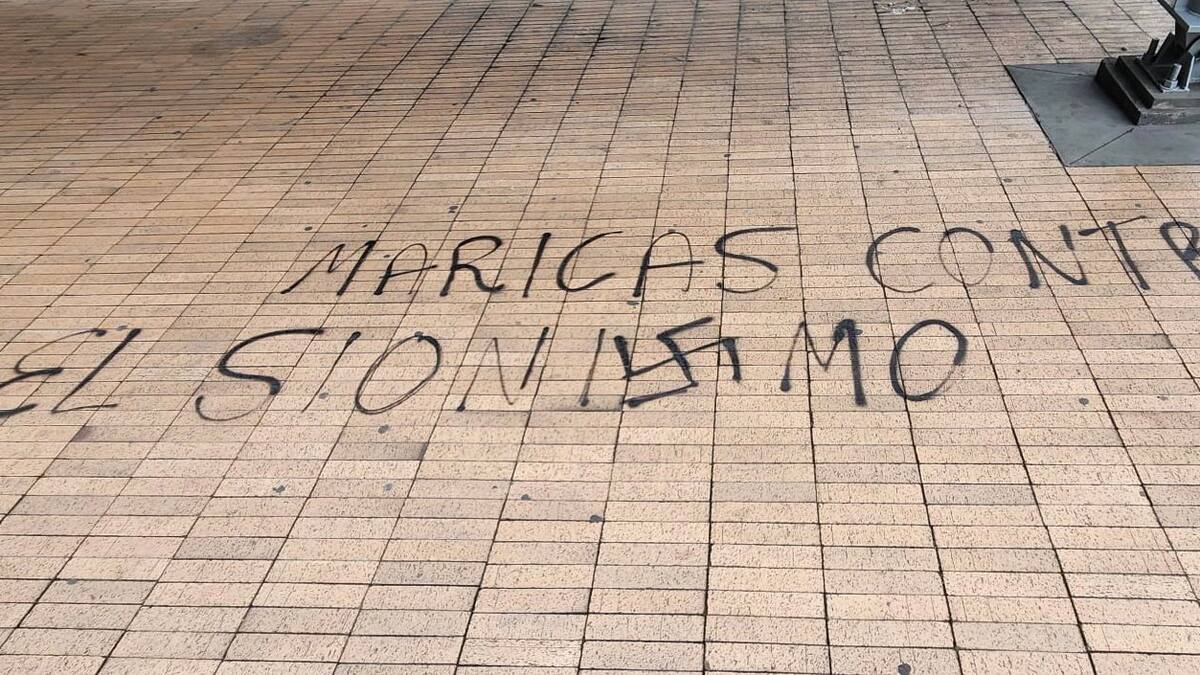 MARICAS CONTR
EL SIONI卐MO